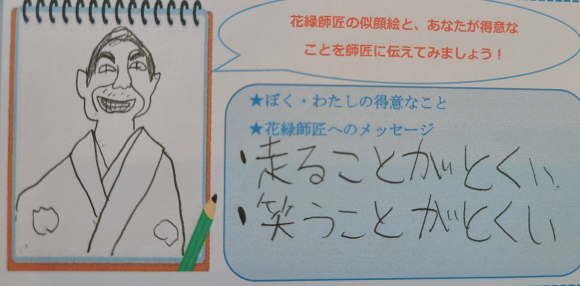 花緑師匠の似顔絵と、あなたが得意な
ことを師匠に伝えてみましょう！
★ぼく・わたしの得意なこと
★花緑師匠へのメッセージ
・走ることがとくい
・笑うことがとくい